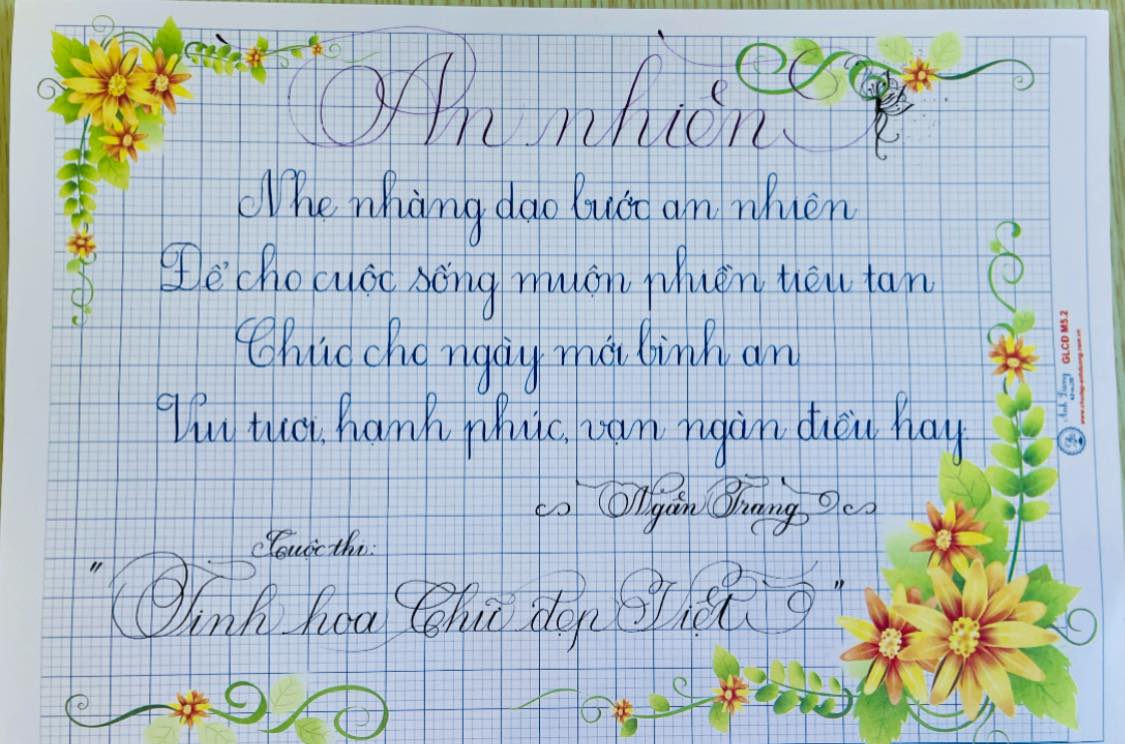 An nhiên
Nhẹ nhàng dạo bước an nhiên
Để cho cuộc sống muộn phiền tiêu tan
Chúc cho ngày mới bình an
Vui tươi, hạnh phúc, vạn ngàn điều hay
Ngân Trang
Cuộc thi:
"Tinh hoa Chữ đẹp Việt"
GLCD M5.2
Ánh Dương